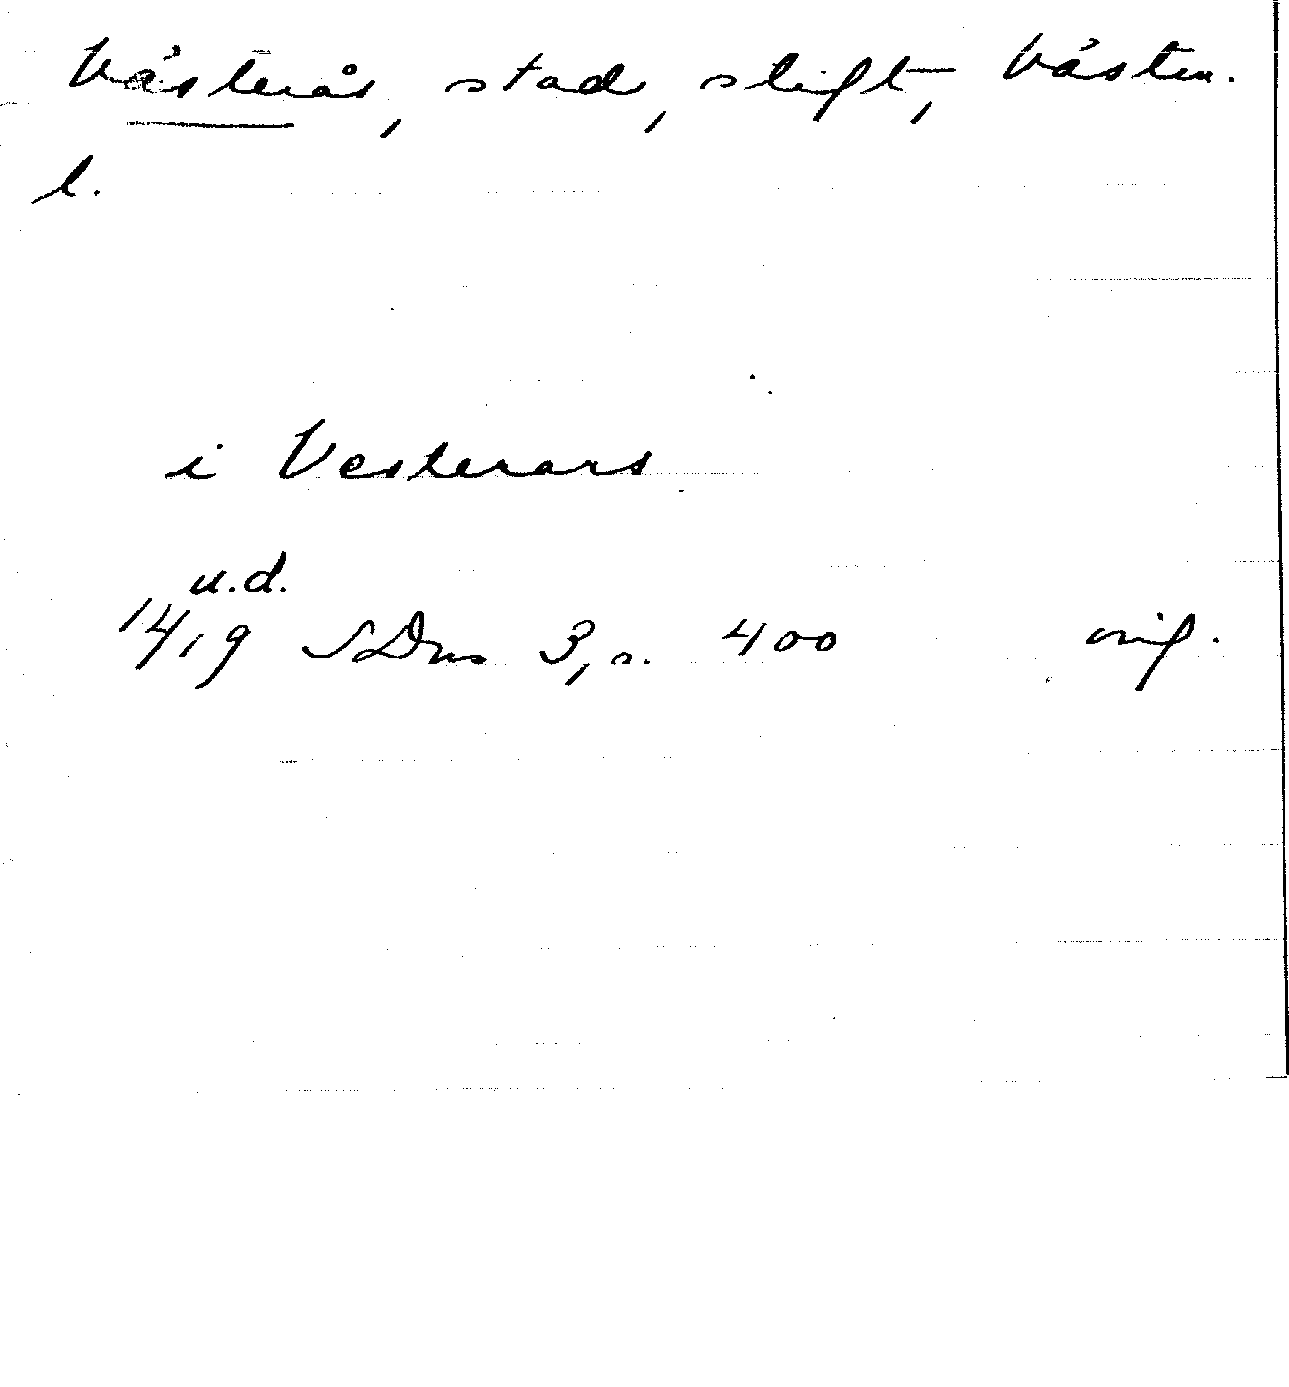 Västerås, stad, stift, Västm.
l.
i Vesterars
u.d.
14/19 SDns 3, s. 400 orig.